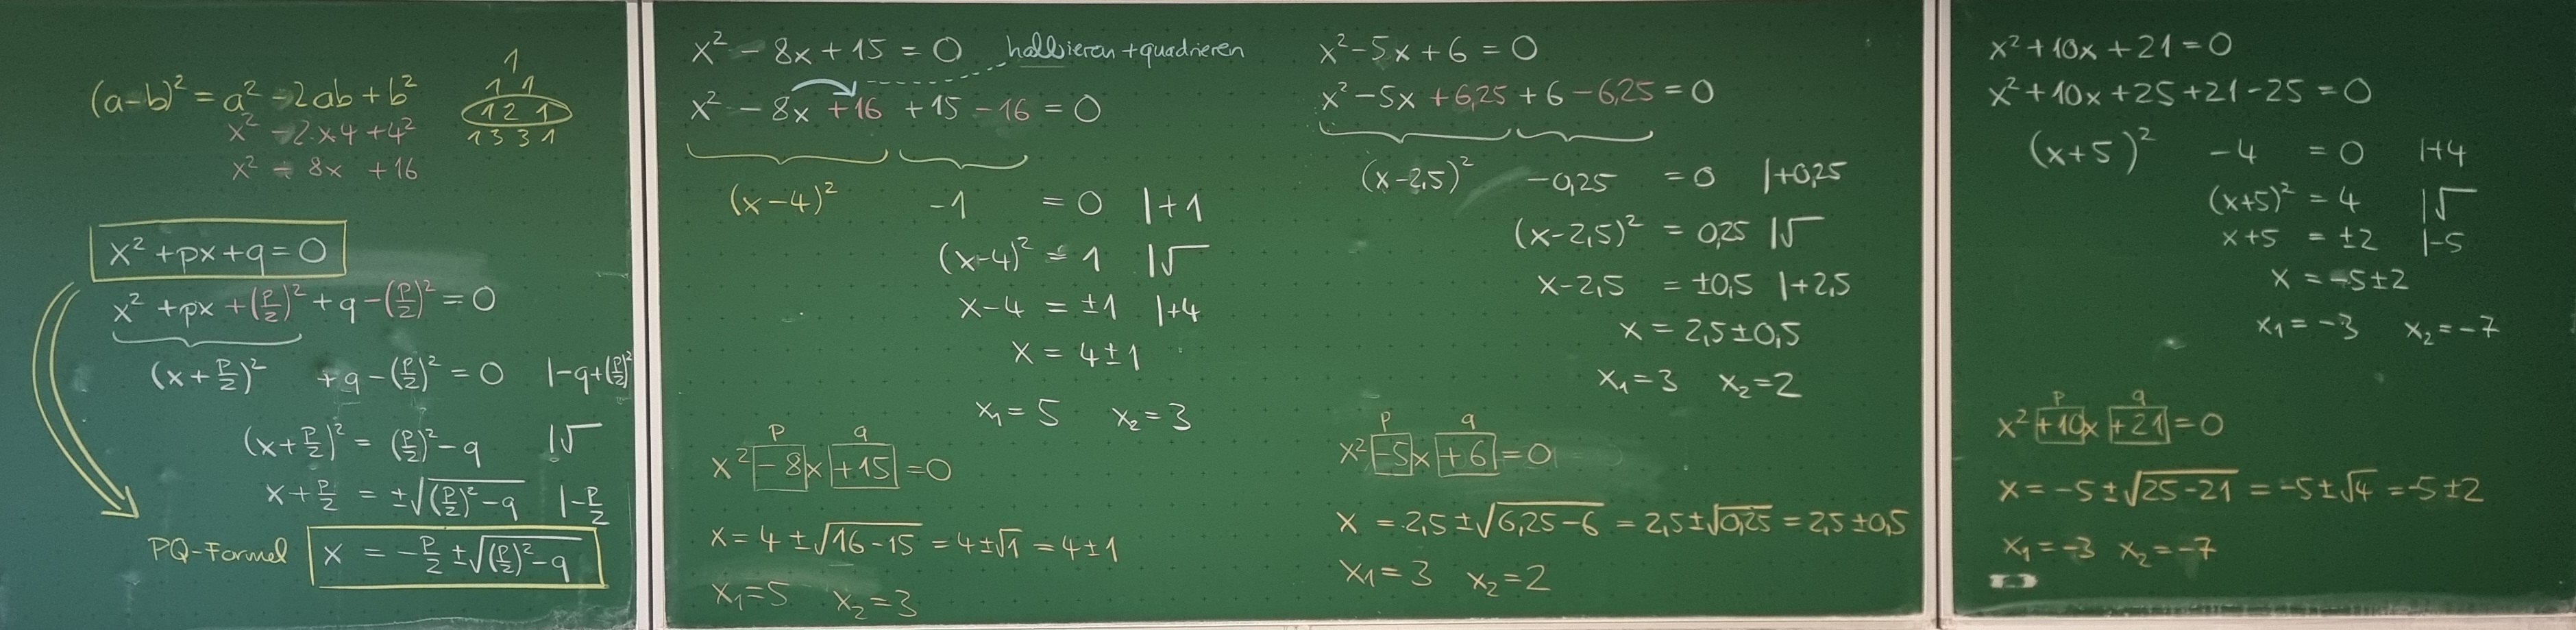 (a-b)² = a² - 2ab + b²
x² - 2·x4 + 4²
x² - 8x + 16
1
1 1
1 2 1
1 3 3 1
x² + px + q = 0
x² + px + (p/2)² + q - (p/2)² = 0
(x + p/2)² + q - (p/2)² = 0 | -q + (p/2)²
(x + p/2)² = (p/2)² - q | √
x + p/2 = ±√((p/2)² - q) | - p/2
PQ-Formel x = - p/2 ± √((p/2)² - q)
x² - 8x + 15 = 0 halbieren + quadrieren
x² - 8x + 16 + 15 - 16 = 0
(x-4)² - 1 = 0 | +1
(x-4)² = 1 | √
x-4 = ±1 | +4
x = 4 ± 1
x₁ = 5 x₂ = 3
p q
x² - 8x + 15 = 0
x = 4 ± √(16-15) = 4 ± √1 = 4 ± 1
x₁ = 5 x₂ = 3
x² - 5x + 6 = 0
x² - 5x + 6,25 + 6 - 6,25 = 0
(x-2,5)² - 0,25 = 0 | +0,25
(x-2,5)² = 0,25 | √
x-2,5 = ±0,5 | +2,5
x = 2,5 ± 0,5
x₁ = 3 x₂ = 2
p q
x² - 5x + 6 = 0
x = 2,5 ± √(6,25-6) = 2,5 ± √0,25 = 2,5 ± 0,5
x₁ = 3 x₂ = 2
x² + 10x + 21 = 0
x² + 10x + 25 + 21 - 25 = 0
(x+5)² - 4 = 0 | +4
(x+5)² = 4 | √
x+5 = ±2 | -5
x = -5 ± 2
x₁ = -3 x₂ = -7
p q
x² + 10x + 21 = 0
x = -5 ± √(25-21) = -5 ± √4 = -5 ± 2
x₁ = -3 x₂ = -7